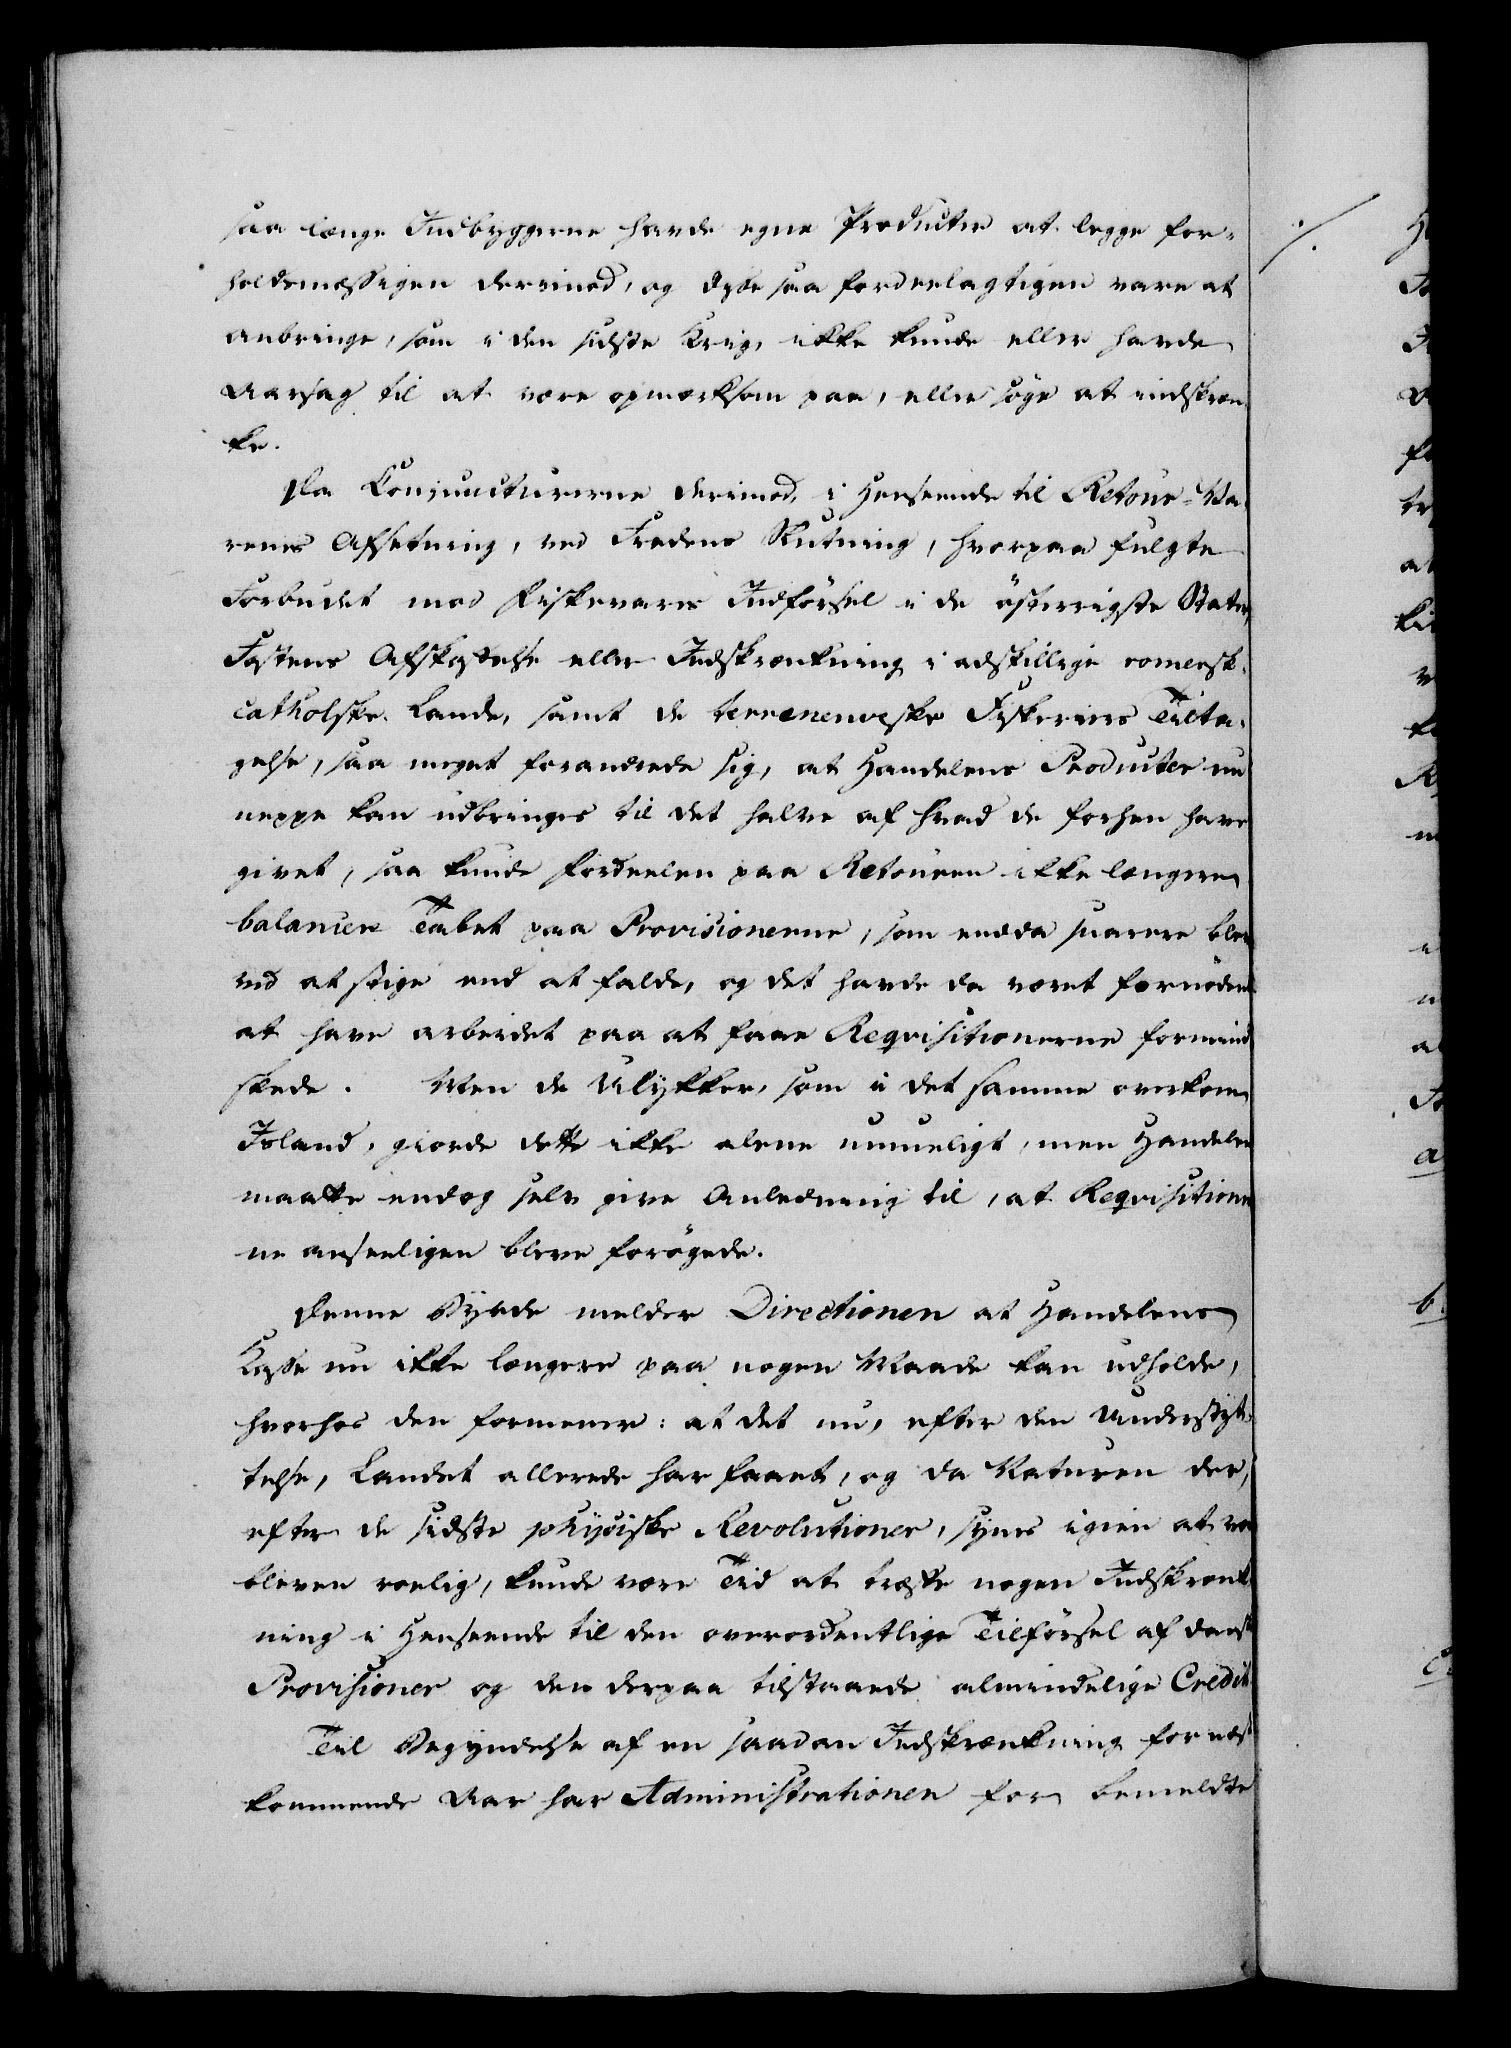 saa længe Indbyggerne havde egne Producter at legge for-
holdsmæssigen derimod, og disse saa fordeelagtigen vare at
anbringe, som i den sidste Krig, ikke kunde eller havde
Aarsag til at være opmærksom paa, eller søge at indskræn
ke.
Da Conjuncturerne derimod, i Henseende til Retour-Va-
renes Afsetning, ved Fredens Slutning, hvorpaa fulgte
Forbudet mod Fiskevares Indförsel i de österrigske Stater,
Fastens Afskaffelse eller Indskrænkning i adskillige romersk-
catholske Lande, samt de terreneuvske Fiskeriers Tilta-
gelse, saa meget forandrede sig, at Handelens Producter nu
neppe kan udbringes til det halve af hvad de forhen have
givet, saa kunde Fordeelen paa Retouren ikke længere
balancere Tabet paa Provisionerne, som endda snarere blev
ved at stige end at falde, og det havde da været fornöden
at have arbeidet paa at faae Reqvisitionerne formind
skede. Men de Ulykker, som i det samme overkom
Island, giorde dette ikke alene umueligt, men Handelen
maatte endog selv give Anledning til, at Reqvisitioner
ne anseeligen bleve forøgede.
Denne Byrde melder Directionen at Handelens
Casse nu ikke længere paa nogen Maade kan udholde,
hvorhos den formener: at det nu, efter den Understøt-
telse, Landet allerede har faaet, og da Naturen der,
efter de sidste physiske Revolutioner, synes igien at være
bleven roelig, kunde være Tid at træffe nogen Indskrænk
ning i Henseende til den overordentlige Tilförsel af danske
Provisioner og den derpaa tilstaaede almindelige Credit.
Til Begyndelse af en saadan Indskrænkning for næst
kommende Aar har Administrationen for bemeldte